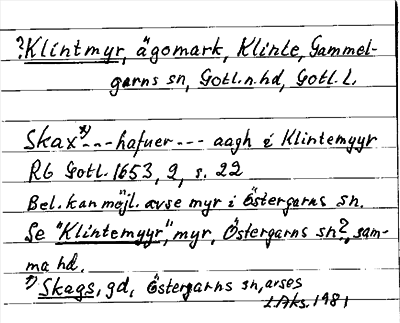 ?Klintmyr, ägomark, Klinte, Gammel-
garns sn, Gotl.n.hd, Gotl. L.
Skax*)---hafuer --- aagh i Klintemyyr
Rb Gotl. 1653, 2, s. 22
Bel. kan möjl. avse myr i Östergarns sn.
Se "Klintemyyr", myr, Östergarns sn?, sam-
ma hd.
*) Skags, gd, Östergarns sn, avses
1981